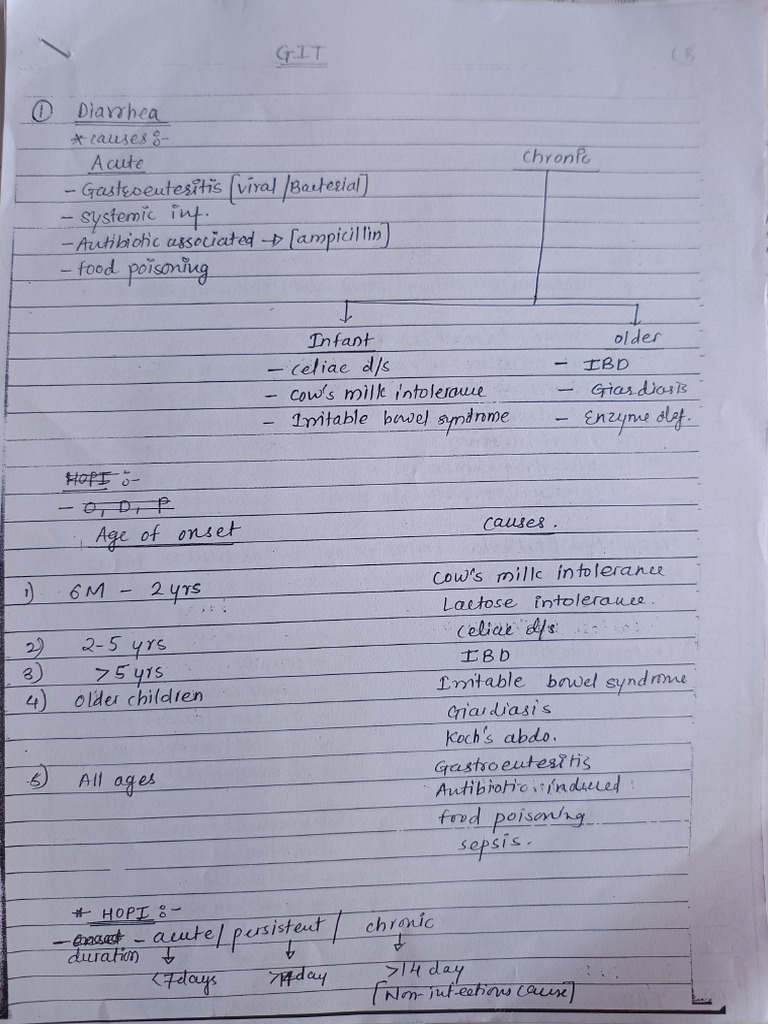 GIT
① Diarrhea
* causes :-
Acute
Chronic
- Gastroeuteritis [viral / Bacterial]
- systemic inf.
- Antibiotic associated → [ampicillin]
- food poisoning
Infant
older
- celiac d/s
- IBD
- cow's milk intolerance
- Giardiasis
- Irritable bowel syndrome
- Enzyme def.
HOPI :-
- O, D, P
Age of onset
causes.
1) 6M - 2 yrs
cow's milk intolerance
Lactose intolerance.
2) 2-5 yrs
celiac d/s
3) >5 yrs
IBD
4) older children
Irritable bowel syndrome
Giardiasis
Koch's abdo.
5) All ages
Gastroeuteritis
Antibiotic induced
food poisoning
sepsis.
* HOPI :-
- onset - acute / persistent / chronic
duration
<7days
day
>14 day
[Non-infectious cause]